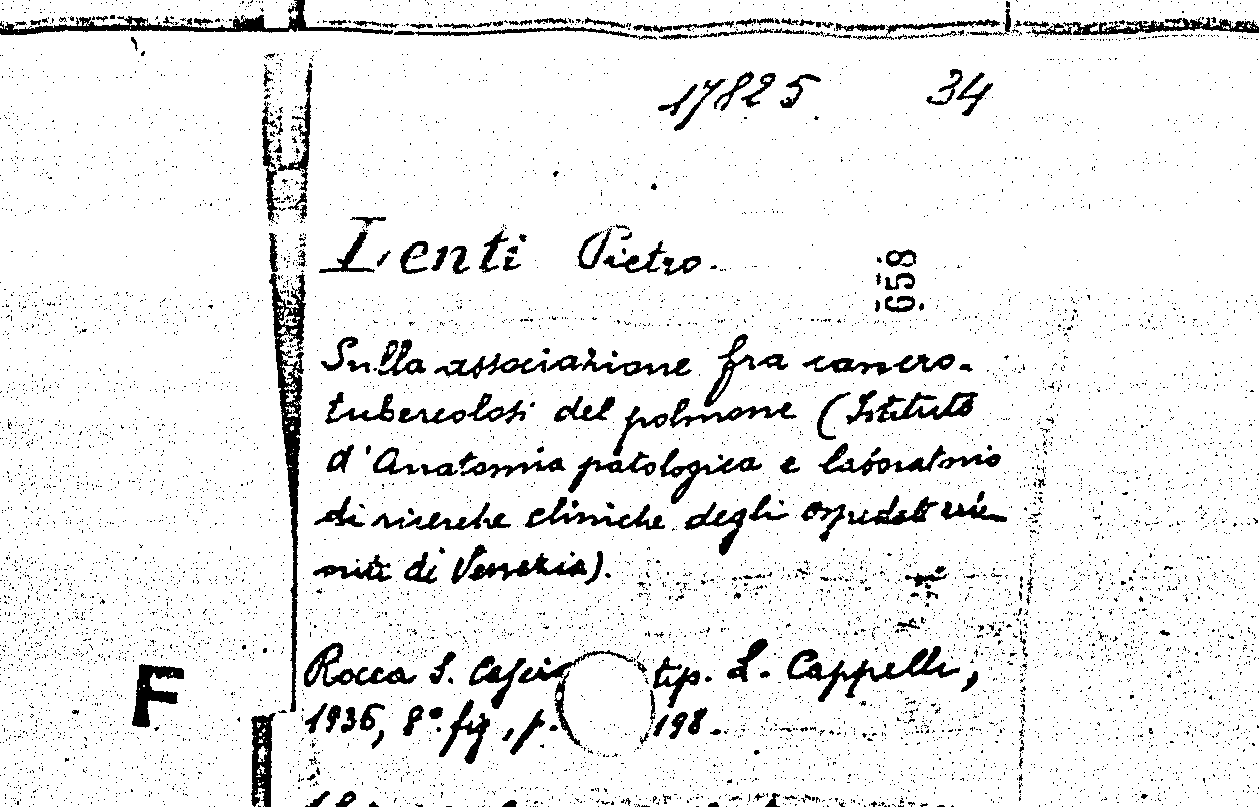 17825 34
Lenti Pietro.
658
Sulla associazione fra cancro-
tubercolosi del polmone (Istituto
d'Anatomia patologica e laboratorio
di ricerche cliniche degli ospedali riu-
niti di Venezia).
Rocca S. Casci tip. L. Cappelli,
F
1936, 8° fig, p. 198.